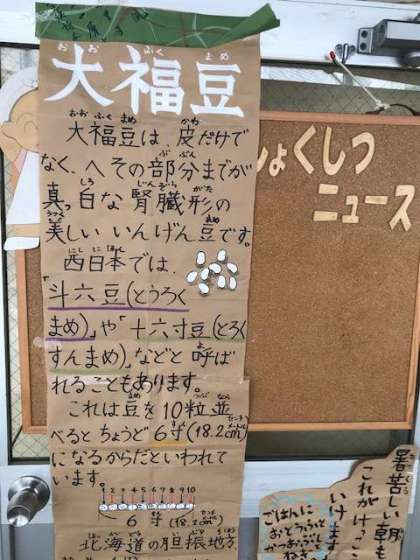 大福豆
大福豆は、皮だけで
なく、へその部分までが
真っ白な腎臓形の
美しいいんげん豆です。
西日本では、
「斗六豆(とうろく
まめ)」や「十六寸豆(とろく
すんまめ)」などと呼ば
れることもあります。
これは豆を10粒並
べるとちょうど6寸(18.2cm)
になるからだといわれて
います。
1 2 3 4 5 6 7 8 9 10
6寸(18.2cm)
北海道の胆振地方
しょくしつ
ニュース
暑苦しい朝も
これがけっこ
いけます
ごはんに